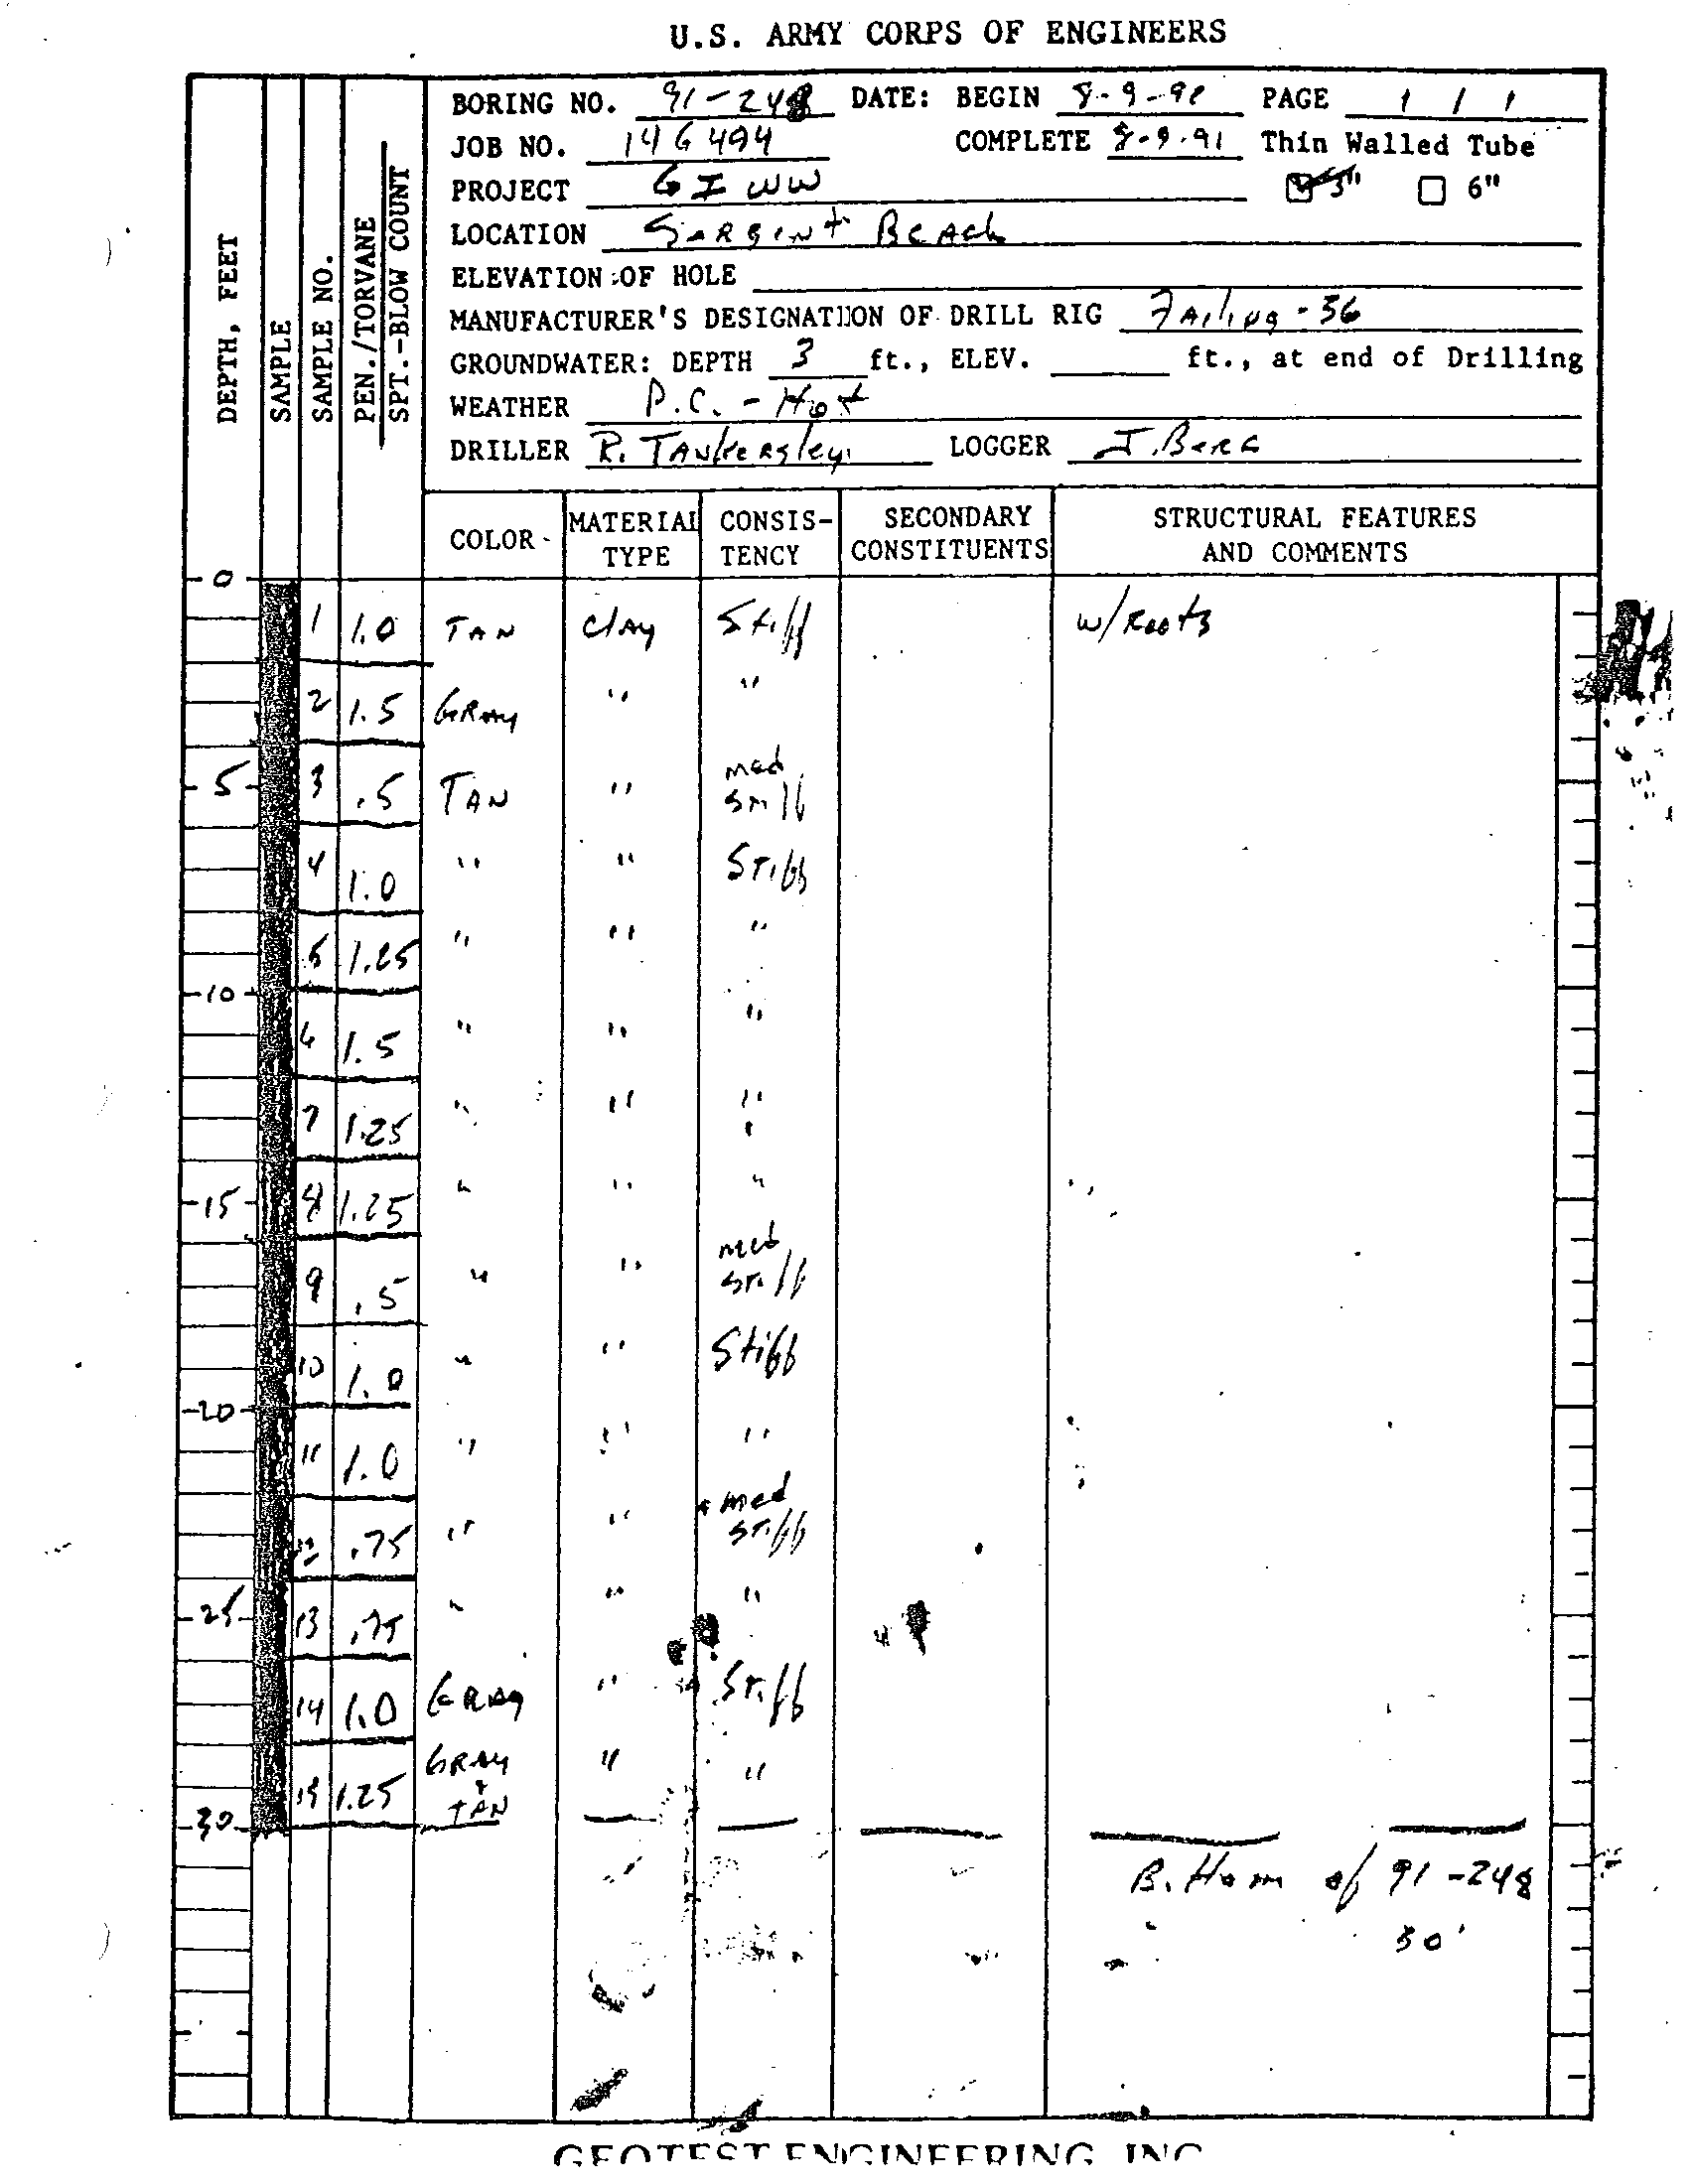 U.S. ARMY CORPS OF ENGINEERS
BORING NO. 91-248 DATE: BEGIN 8-9-91 PAGE 1 / 1
JOB NO. 14G494 COMPLETE 8-9-91 Thin Walled Tube
PROJECT GIWW 3" 6"
LOCATION SARgENt BEACh
ELEVATION OF HOLE
MANUFACTURER'S DESIGNATION OF DRILL RIG FAiliNg-36
GROUNDWATER: DEPTH 3 ft., ELEV. ft., at end of Drilling
WEATHER P.C. - Hot
DRILLER R. TANkERsley LOGGER J. BERG
DEPTH, FEET SAMPLE SAMPLE NO. PEN./TORVANE SPT.-BLOW COUNT
COLOR MATERIAL TYPE CONSIS-TENCY SECONDARY CONSTITUENTS STRUCTURAL FEATURES AND COMMENTS
0
1 1.0 TAN ClAy Stiff w/Roots
2 1.5 GRAy " "
5 3 .5 TAN " med Stiff
4 1.0 " " STiff
5 1.25 " " "
10
6 1.5 " " "
7 1.25 " " "
15 8 1.25 " " "
9 .5 " " med STiff
10 1.0 " " Stiff
20
11 1.0 " " "
12 .75 " " med STiff
25 13 .75 " " "
14 1.0 GRAy " STiff
15 1.25 GRAy & TAN " "
30
Bottom of 91-248
30'
GEOTEST ENGINEERING, INC